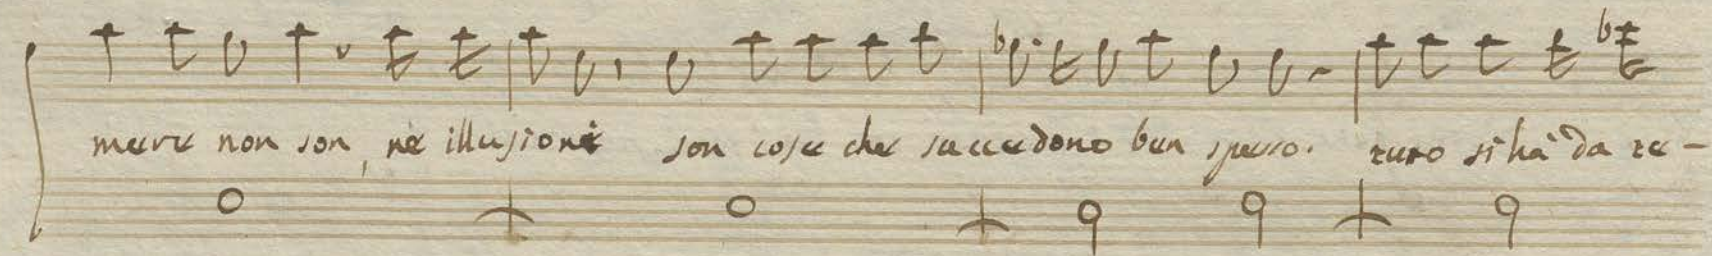 mere non son, ne illusioni son cose che succedono ben spesso. tutto si hà da te-